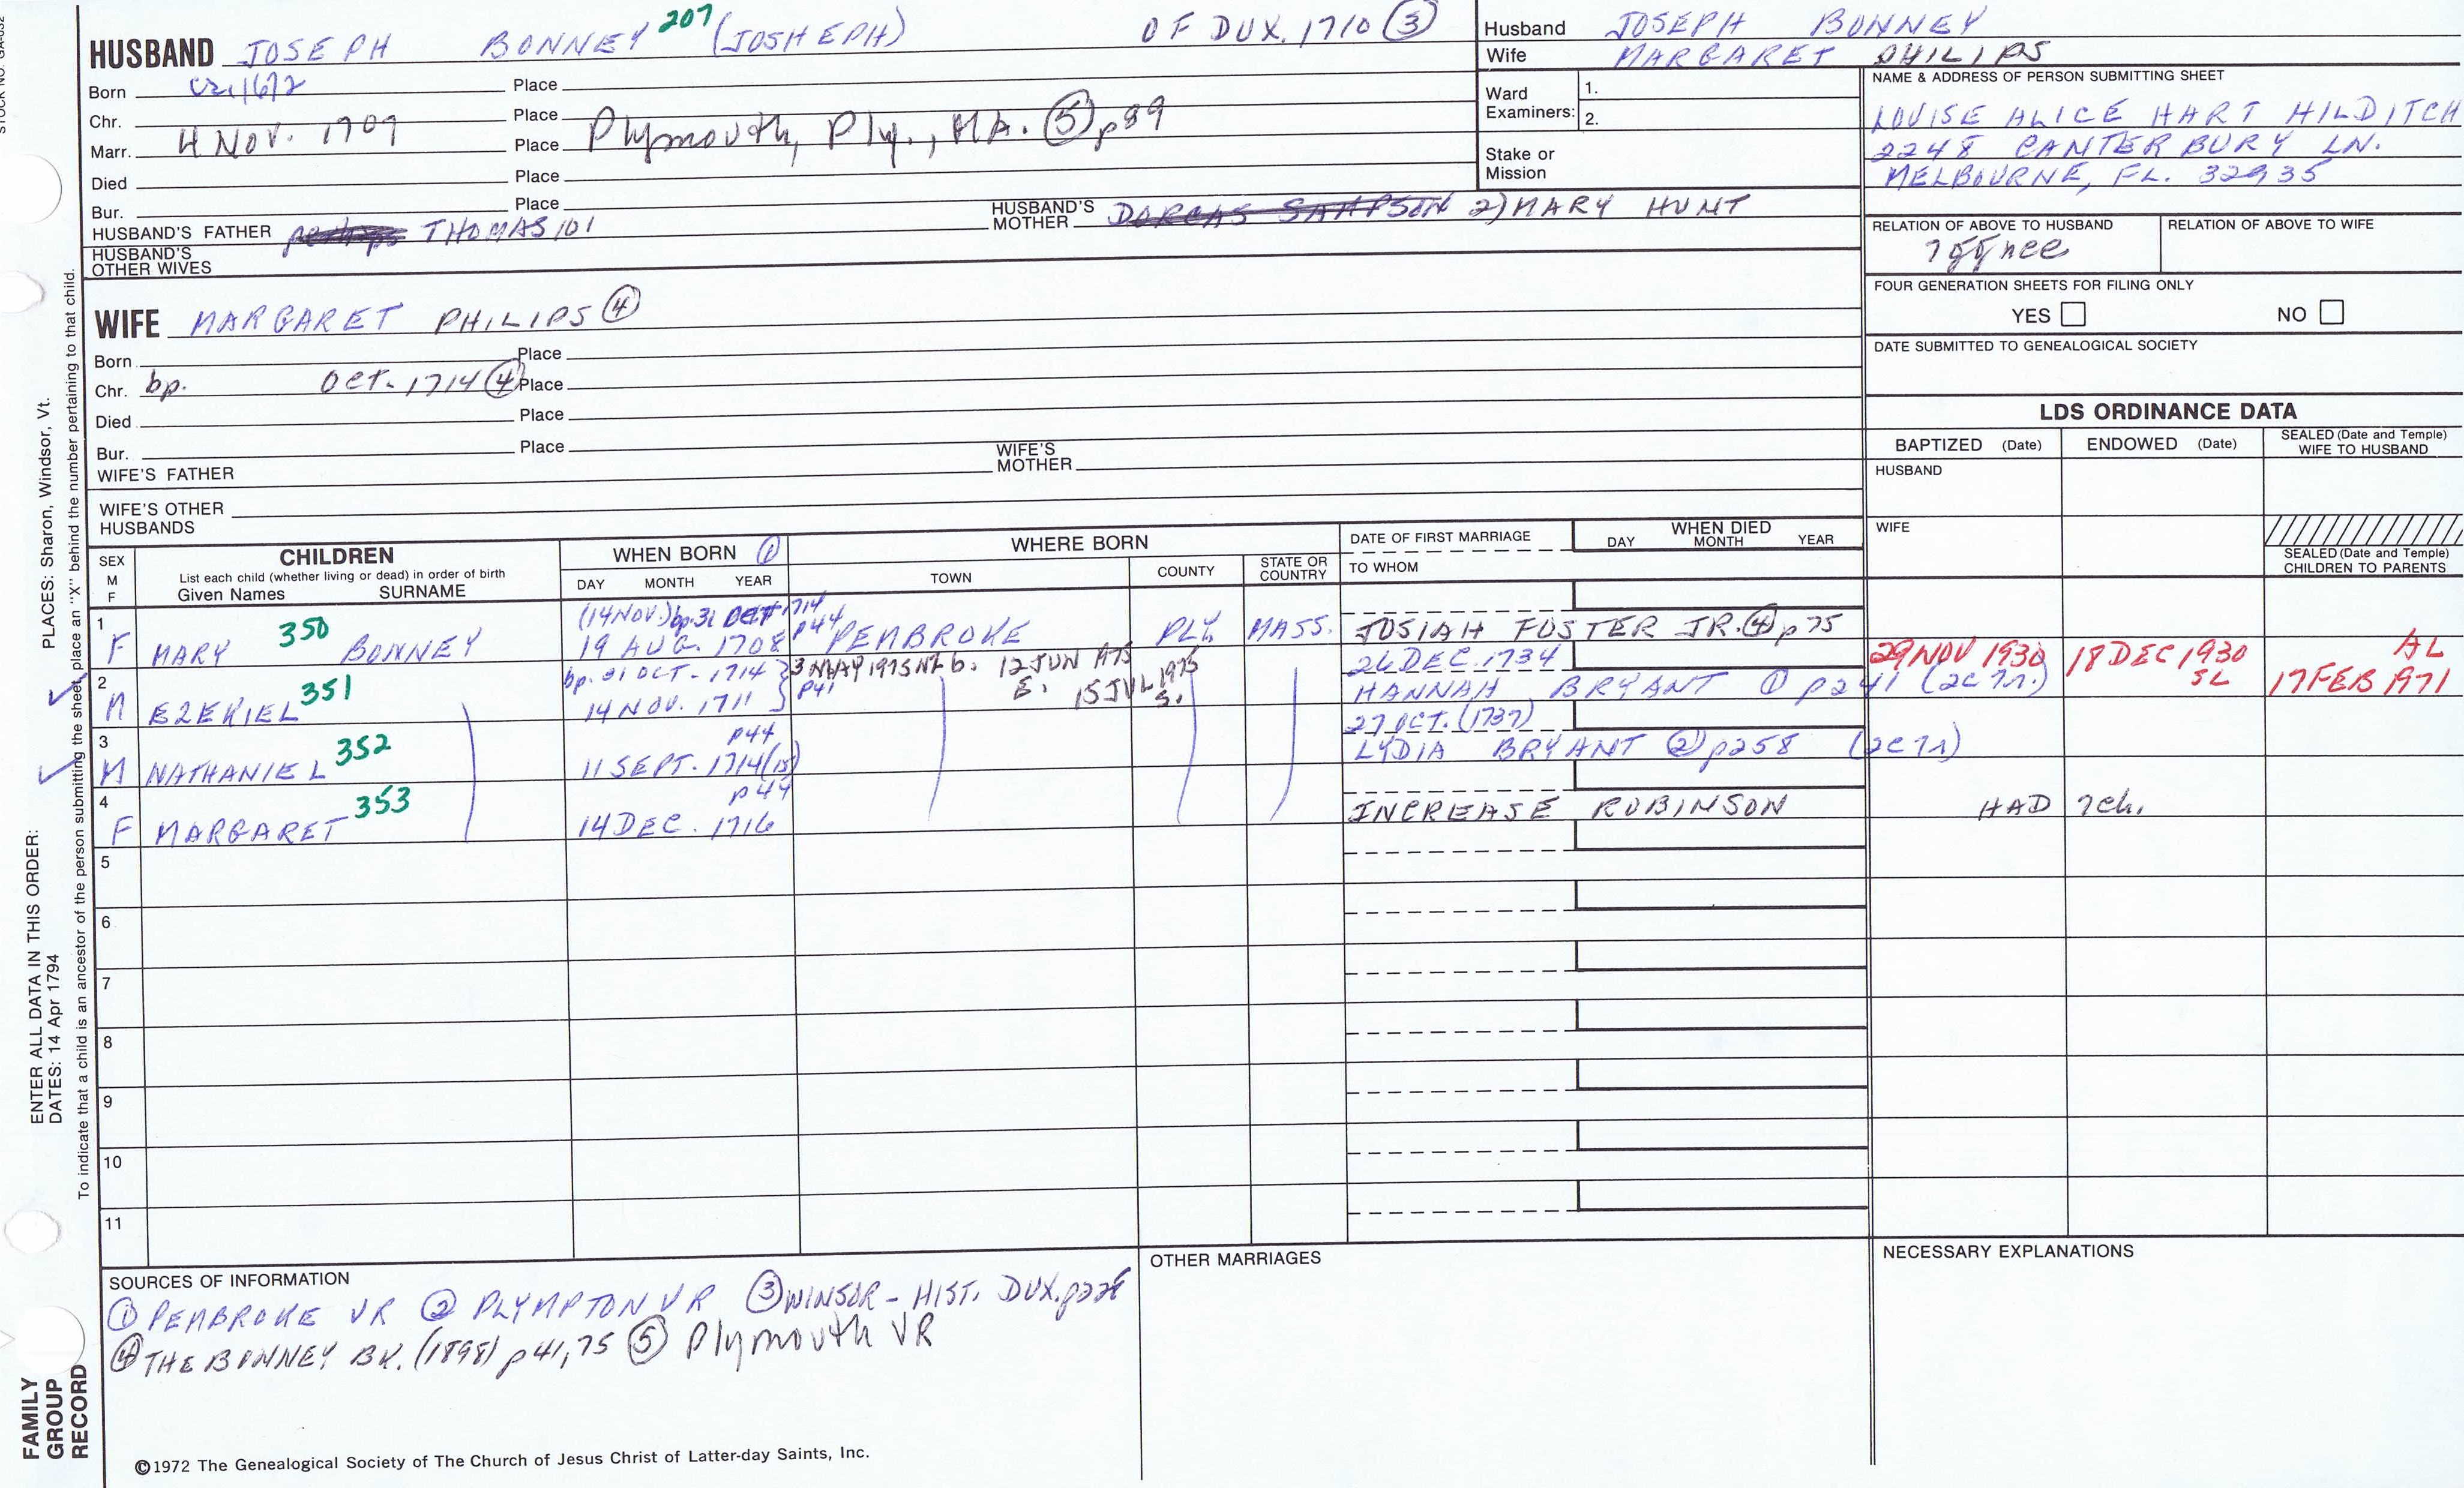 HUSBAND JOSEPH BONNEY 207 (JOSHEPH) OF DUX. 1710 ③
Born 1672 Place
Chr. Place
Marr. 4 NOV. 1709 Place Plymouth, Ply., MA. ⑤ p89
Died Place
Bur. Place
HUSBAND'S FATHER perhaps THOMAS 101 HUSBAND'S MOTHER DORCAS SAMPSON 2) MARY HUNT
HUSBAND'S OTHER WIVES
WIFE MARGARET PHILIPS ④
Born Place
Chr. bp. OCT. 1714 ④ Place
Died Place
Bur. Place
WIFE'S FATHER WIFE'S MOTHER
WIFE'S OTHER HUSBANDS
Husband JOSEPH BONNEY
Wife MARGARET PHILIPS
Ward Examiners: 1.
2.
Stake or Mission
NAME & ADDRESS OF PERSON SUBMITTING SHEET
LOUISE ALICE HART HILDITCH
2248 CANTERBURY LN.
MELBOURNE, FL. 32935
RELATION OF ABOVE TO HUSBAND RELATION OF ABOVE TO WIFE
FOUR GENERATION SHEETS FOR FILING ONLY
YES NO
DATE SUBMITTED TO GENEALOGICAL SOCIETY
LDS ORDINANCE DATA
BAPTIZED (Date) ENDOWED (Date) SEALED (Date and Temple) WIFE TO HUSBAND
HUSBAND
WIFE
SEALED (Date and Temple) CHILDREN TO PARENTS
SEX M F
CHILDREN
List each child (whether living or dead) in order of birth
Given Names SURNAME
WHEN BORN ①
DAY MONTH YEAR
WHERE BORN
TOWN COUNTY STATE OR COUNTRY
DATE OF FIRST MARRIAGE
TO WHOM
WHEN DIED
DAY MONTH YEAR
1 (14 NOV.) bp. 31 OCT 1714 p44
F MARY 350 BONNEY 19 AUG. 1708 PEMBROKE PLY MASS. JOSIAH FOSTER JR. ④ p75
2 bp. 31 OCT. 1714 p41 12 JUN 1975 26 DEC. 1734 29 NOV 1930 18 DEC 1930 SL AL
M EZEKIEL 351 14 NOV. 1711 E. 15 JUL 1975 S. HANNAH BRYANT ① p241 17 FEB 1971
3 p44 27 OCT. (1737)
M NATHANIEL 352 11 SEPT. 1714 (15) LYDIA BRYANT ② p258
4 p44
F MARGARET 353 14 DEC. 1716 INCREASE ROBINSON HAD 7 ch.
5
6
7
8
9
10
11
SOURCES OF INFORMATION
① PEMBROKE VR ② PLYMPTON VR ③ WINSOR - HIST. DUX.
④ THE BONNEY BK. (1898) p41,75 ⑤ Plymouth VR
OTHER MARRIAGES
NECESSARY EXPLANATIONS
©1972 The Genealogical Society of The Church of Jesus Christ of Latter-day Saints, Inc.
FAMILY GROUP RECORD
ENTER ALL DATA IN THIS ORDER: PLACES: Sharon, Windsor, Vt.
DATES: 14 Apr 1794
To indicate that a child is an ancestor of the person submitting the sheet, place an "X" behind the number pertaining to that child.